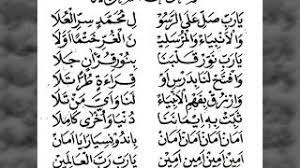 يَارَبِّ صَلِّ عَلَى الرَّسُوْ لِ مُحَمَّدٍ سِرِّ الْعُلَا
وَالْأَنْبِيَاءِ وَالْمُرْسَلِيْـ نَ الْغُرِّ خَتْمًا أَوَّلَا
يَارَبِّ نَوِّرْ قَلْبَنَا بِنُوْرِ قُرْآنٍ جَلَا
وَافْتَحْ لَنَا بِدَرْسٍ أَوْ قِرَاءَةٍ تُرَتَّلَا
وَارْزُقْ بِفَهْمِ الْأَنْبِيَاءِ لَنَا وَأَيَّ مَنْ تَلَا
ثَبِّتْ بِهِ إِيْمَانَنَا دُنْيَا وَأُخْرَى كَامِلَا
أَمَانْ أَمَانْ أَمَانْ أَمَانْ بِإِنْدُوْنِيْسِيَا رَايَا أَمَانْ
آمِيْن آمِيْن آمِيْن آمِيْن يَارَبِّ رَبَّ الْعَالَمِيْن